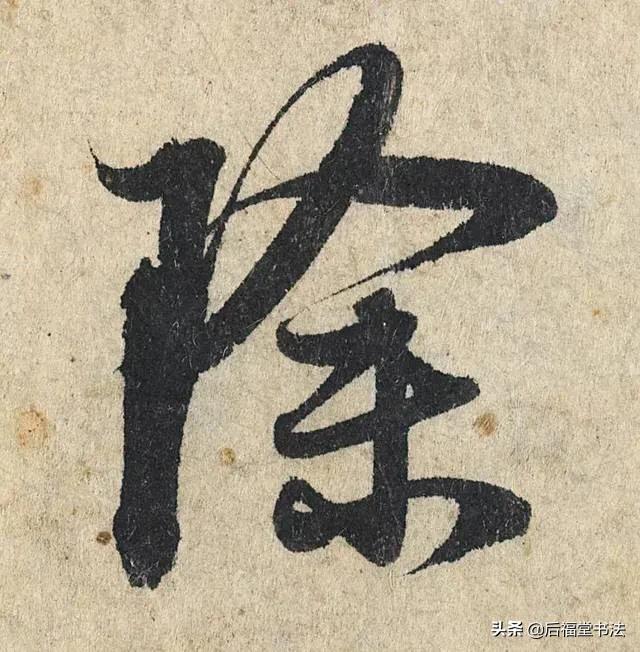 除
头条 @后福堂书法